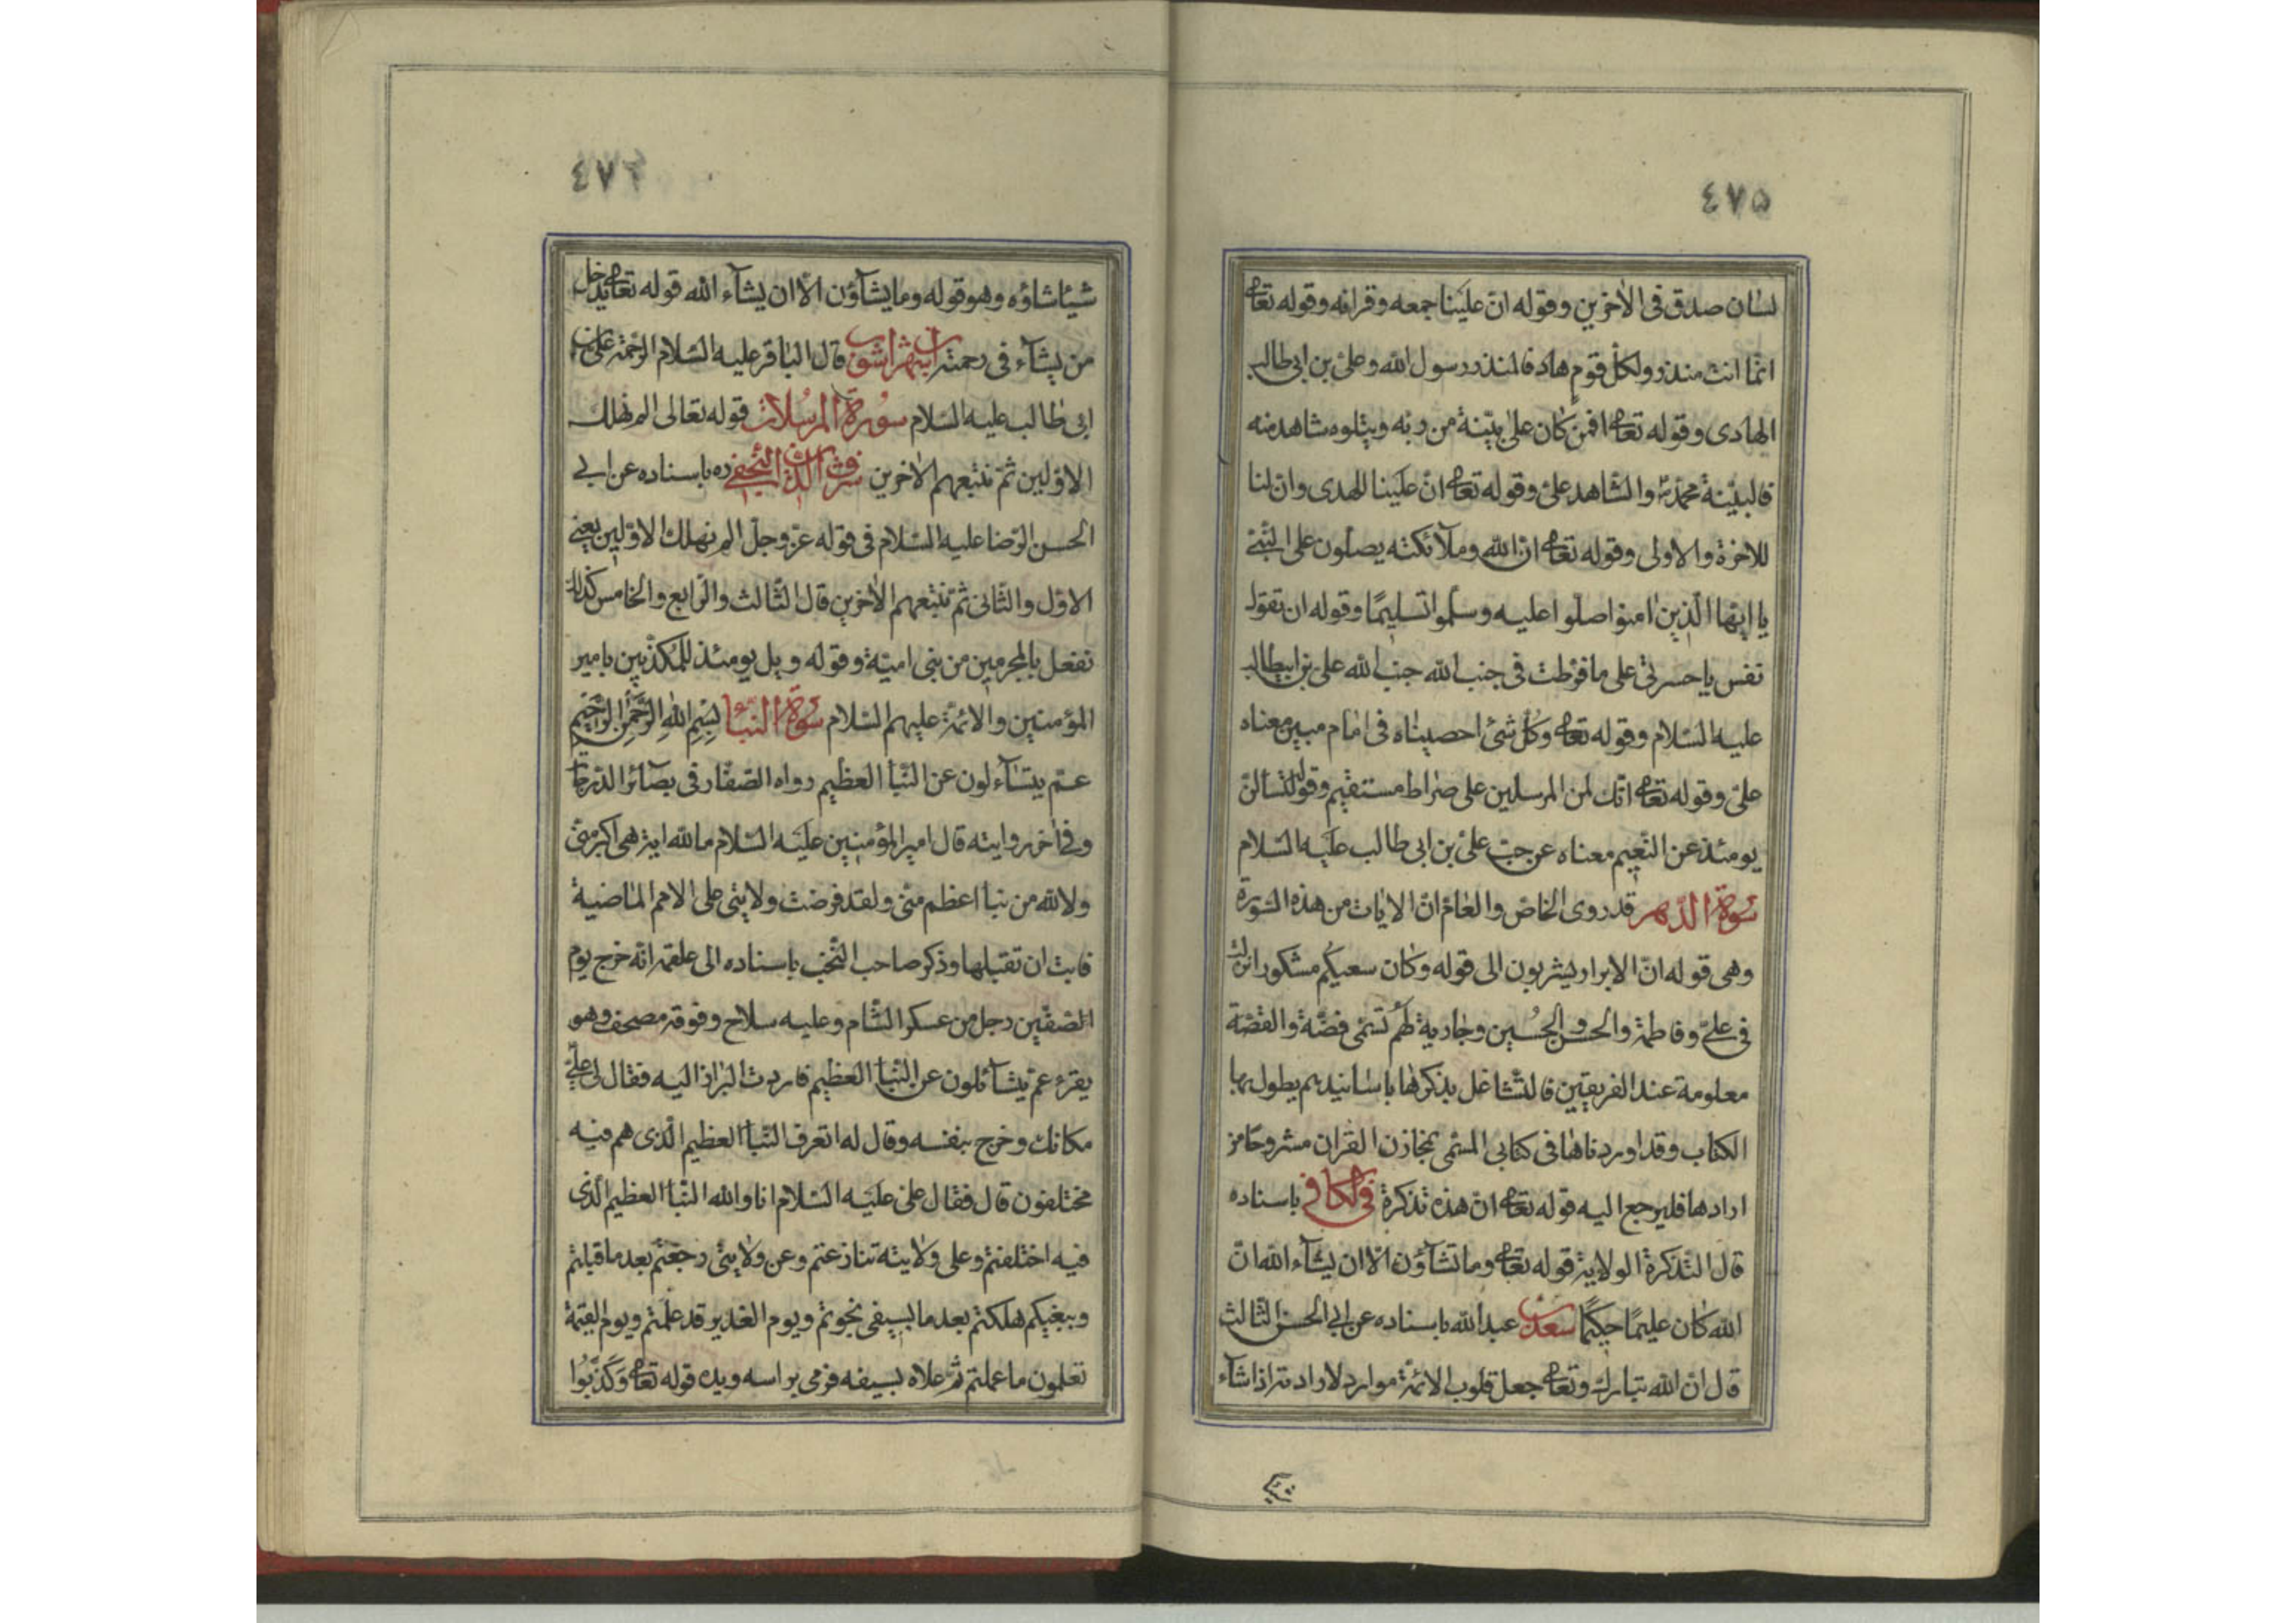 ٤٧٥
لسان صدق فى الاخرين وقوله انّ علينا جمعه وقرانه وقوله تعالى
انّما انت منذر ولكلّ قوم هاد فالمنذر رسول الله وعلىّ بن ابى طالب
الهادى وقوله تعالى افمن كان على بيّنة من ربّه ويتلوه شاهد منه
فالبيّنة محمّد والشّاهد علىّ وقوله تعالى انّ علينا للهدى وان لنا
للاخرة والاولى وقوله تعالى انّ الله وملآئكته يصلّون على النّبىّ
يا ايّها الّذين امنوا صلّوا عليه وسلّموا تسليمًا وقوله ان تقول
نفس يا حسرتى على ما فرّطت فى جنب الله جنب الله على بن ابيطالب
عليه السّلام وقوله تعالى وكلّ شئ احصيناه فى امام مبين معناه
علىّ وقوله تعالى انّك لمن المرسلين على صراط مستقيم وقوله لتسألنّ
يومئذ عن النّعيم معناه عن حبّ علىّ بن ابى طالب عليه السّلام
سورة الدّهر قد روى الخاصّ والعامّ انّ الايات من هذه السّورة
وهى قوله انّ الابرار يشربون الى قوله وكان سعيكم مشكورا نزلت
فى علىّ وفاطمة والحسن والحسين وجارية لهم تسمّى فضّة والقصّة
معلومة عند الفريقين فالتّشاغل بذكرها باسانيدهم يطول بها
الكتاب وقد اوردناها فى كتابى المسمّى بمخازن القران مشروحًا من
ارادها فليرجع اليه قوله تعالى انّ هذه تذكرة فى الكافى باسناده
قال التّذكرة الولاية قوله تعالى وما تشآؤن الّا ان يشآء الله انّ
الله كان عليمًا حكيمًا سعد بن عبد الله باسناده عن ابى الحسن الثّالث
قال انّ الله تبارك وتعالى جعل قلوب الائمّة موارد لارادته اذا شآء
٤٧٦
شيئا شاؤه وهو قوله وما يشآؤن الّا ان يشآء الله قوله تعالى يدخل
من يشآء فى رحمته ابن شهراشوب قال الباقر عليه السّلام الرّحمة علىّ بن
ابى طالب عليه السّلام سورة المرسلات قوله تعالى الم نهلك
الاوّلين ثمّ نتبعهم الاخرين شرف الدّين النّجفى ره باسناده عن ابى
الحسن الرّضا عليه السّلام فى قوله عزّ وجلّ الم نهلك الاوّلين يعنى
الاوّل والثّانى ثمّ نتبعهم الاخرين قال الثّالث والرّابع والخامس كذلك
نفعل بالمجرمين من بنى اميّة وقوله ويل يومئذ للمكذّبين بامير
المؤمنين والائمّة عليهم السّلام سورة النّبأ بسم الله الرّحمن الرّحيم
عمّ يتسآءلون عن النّبأ العظيم رواه الصّفّار فى بصآئر الدّرجات
وفى اخر روايته قال امير المؤمنين عليه السّلام ما لله اية هى اكبر منّى
ولا لله من نبأ اعظم منّى ولقد فرضت ولايتى على الامم الماضية
فابت ان تقبلها وذكر صاحب النّخب باسناده الى علقمة انّه خرج يوم
الصّفّين رجل من عسكر الشّام وعليه سلاح وفوقه مصحف وهو
يقرء عمّ يتسآئلون عن النّبأ العظيم فاردت البراز اليه فقال لى علىّ
مكانك وخرج بنفسه وقال له اتعرف النّبأ العظيم الّذى هم فيه
مختلفون قال فقال علىّ عليه السّلام انا والله النّبأ العظيم الّذى
فيه اختلفتم وعلى ولايته تنازعتم وعن ولايتى رجعتم بعد ما قبلتم
وببغيكم هلكتم بعد ما بسيفى نجوتم ويوم الغدير قد علمتم ويوم القيمة
تعلمون ما عملتم ثمّ علاه بسيفه فرمى براسه ويده قوله تعالى وكذّبوا